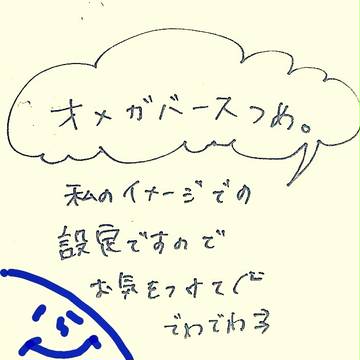 オメガバースつめ。
私のイメージでの
設定ですので
お気をつけてぐ
でわでわ